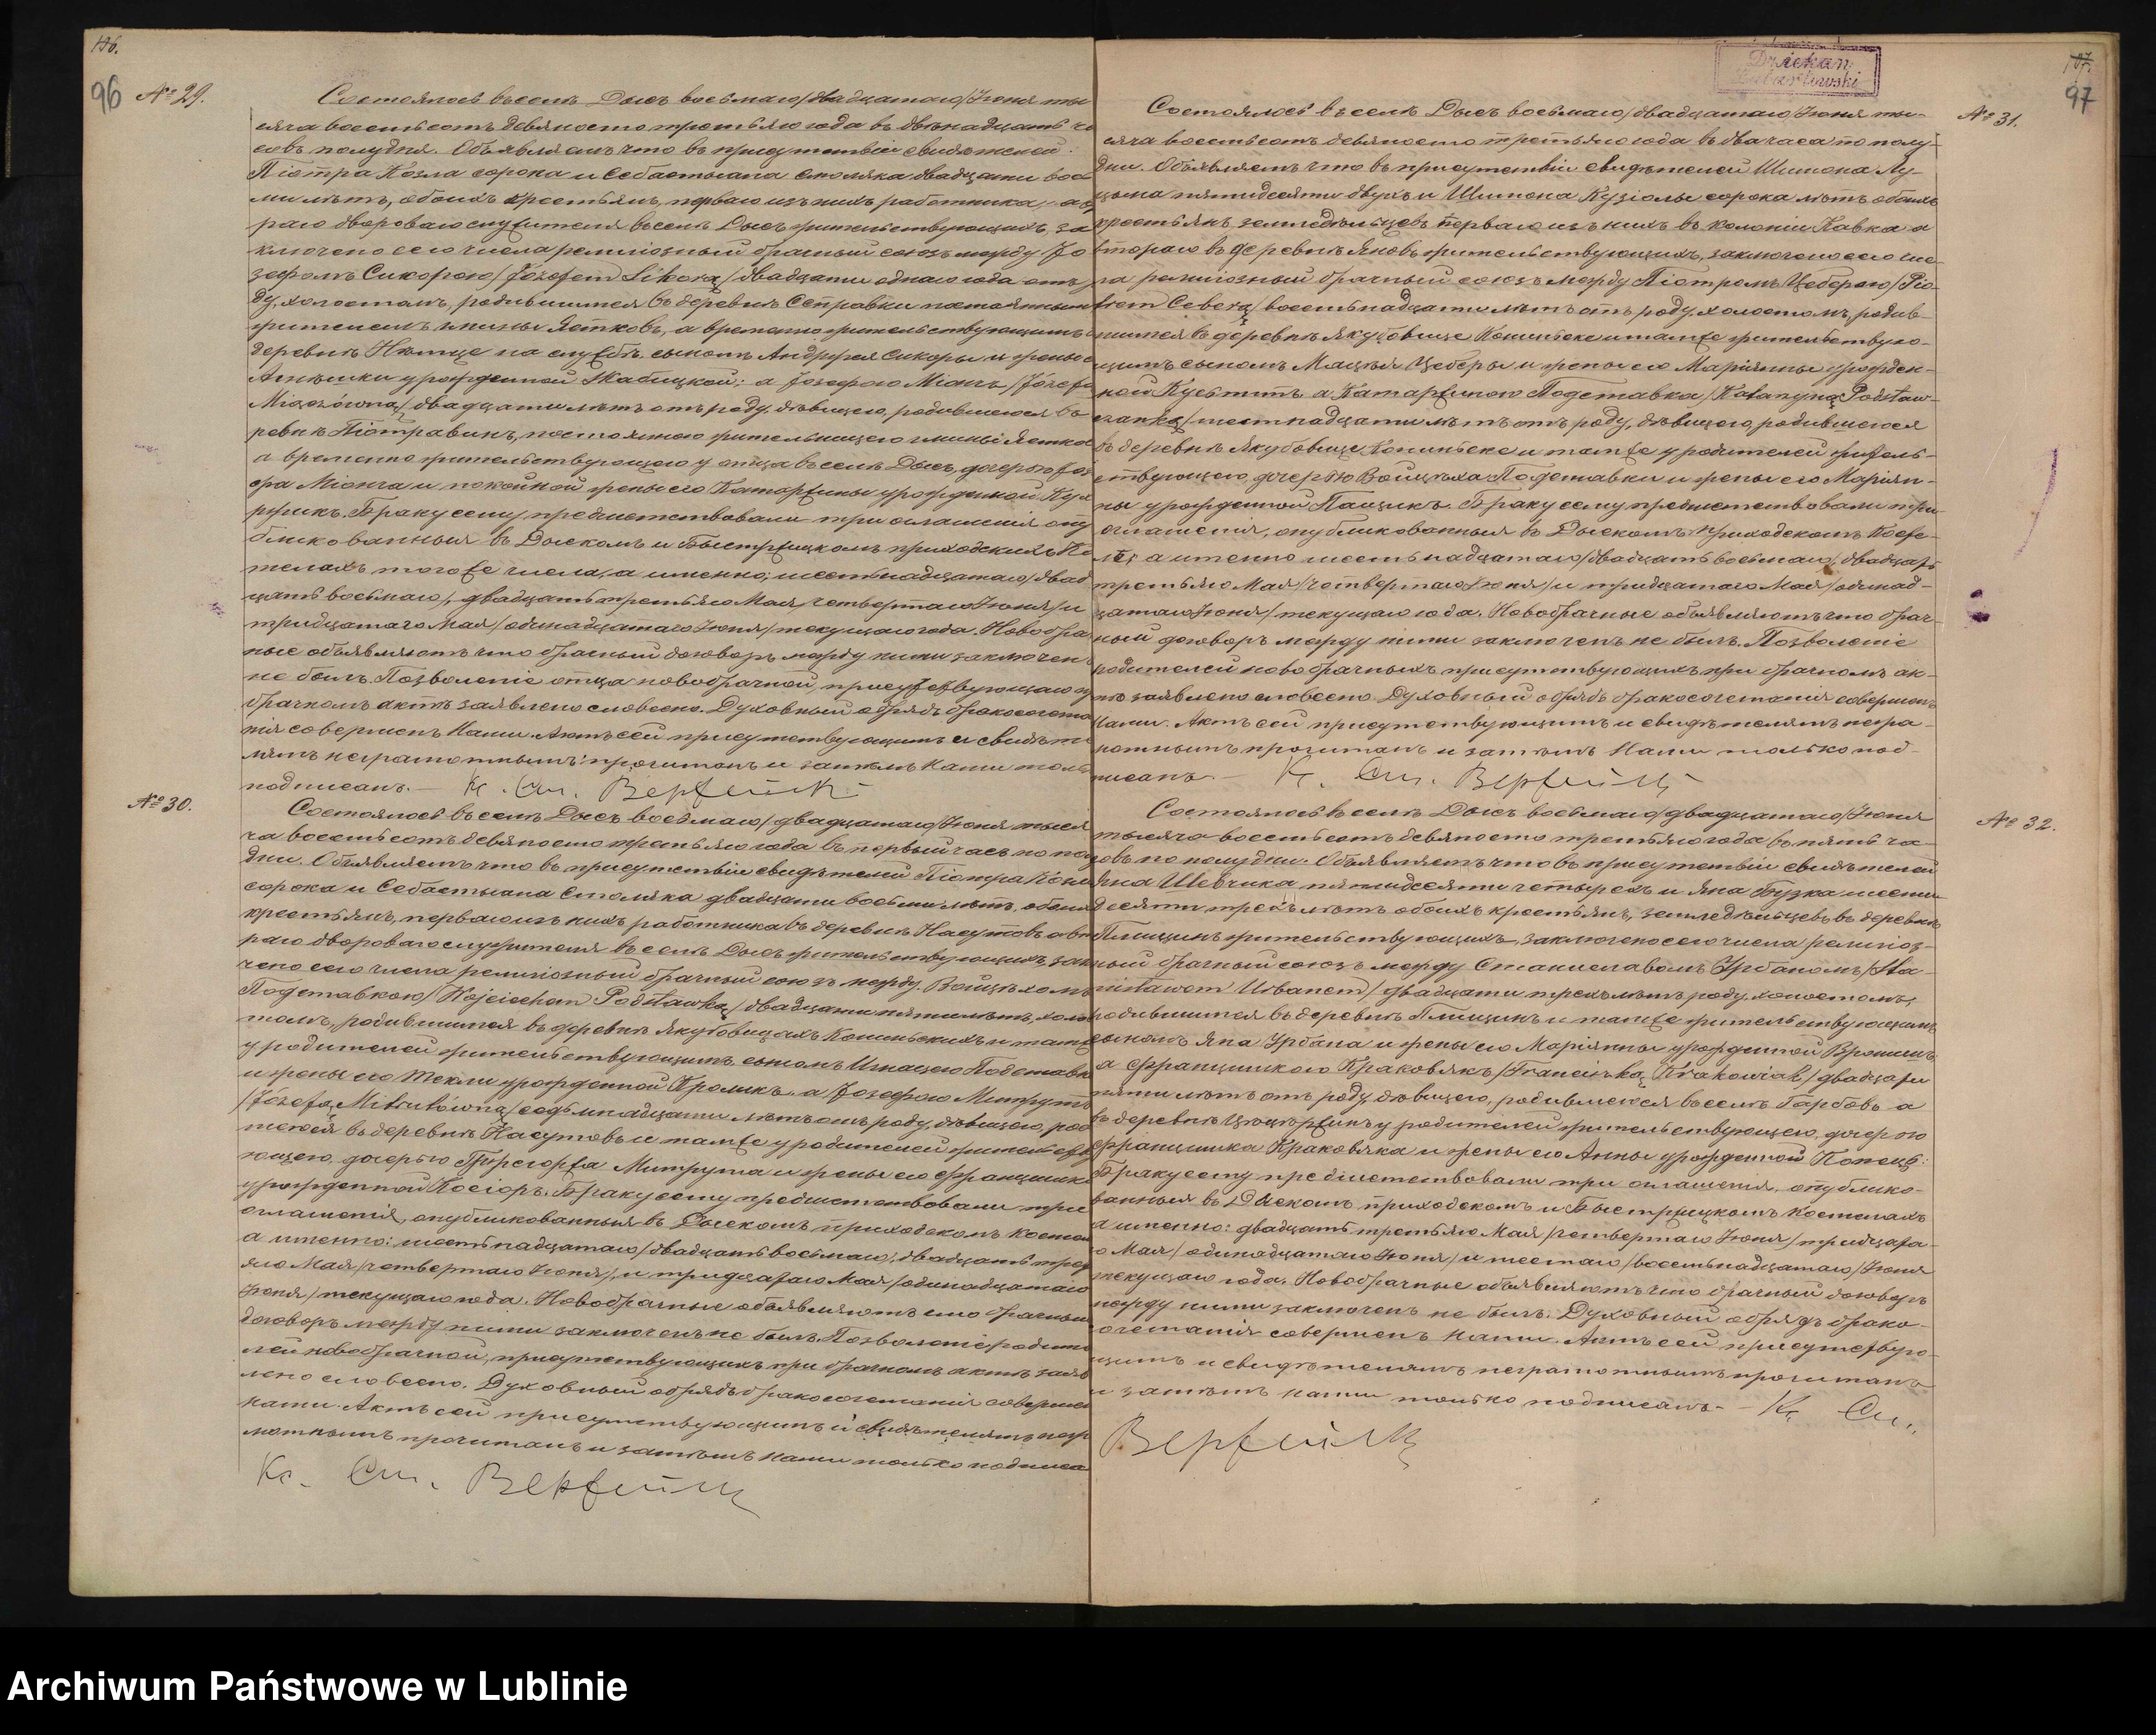 196.
96
№ 29.
Состоялось въ селѣ Дысъ восьмаго /двадцатаго/ Іюня ты
сяча восемьсотъ девяносто третьяго года въ двѣнадцать ча
совъ полудня. Объявляемъ что въ присутствіи свидѣтелей
Піотра Козла сорока и Себастьяна Столяка двадцати вось
ми лѣтъ, обоихъ крестьянъ, перваго изъ нихъ работника, а вто
раго двороваго служителя въ селѣ Дысъ жительствующихъ, за
ключено сего числа религіозный брачный союзъ между Іо
зефомъ Сикорою /Józefem Sikorą/ двадцати одного года отъ ро
ду, холостомъ, родившимся въ деревнѣ постояннымъ
жителемъ гмины Ястковъ, а временно жительствующимъ въ
деревнѣ Нѣмце на службѣ, сыномъ Андржея Сикоры и жены его
Агнѣшки урожденной Жабицкой; а Іозефою Міончъ /Józefą
двадцати лѣтъ отъ роду, дѣвицею, родившеюся въ де
ревнѣ Піотравинъ, постоянною жительницею гмины Ястковъ
а временно жительствующею у отца въ селѣ Дысъ, дочерью Іозе
фа Міонча и покойной жены его Катаржины урожденной
Браку сему предшествовали три оглашенія опу
бликованныя въ Дыскомъ и Быстржицкомъ приходскихъ Ко
стелахъ тогоже числа, а именно; шестнадцатаго /двад
цать восьмаго/, двадцать третьяго Мая /четвертаго Іюня/ и
тридцатаго Мая /одинадцатаго Іюня/ текущаго года. Новобрач
ные объявляютъ что брачный договоръ между ними заключенъ
не былъ. Позволеніе отца новобрачной, присутствующаго при
брачномъ актѣ заявлено словесно. Духовный обрядъ бракосочета
нія совершенъ Нами. Актъ сей присутствующимъ и свидѣте
лямъ неграмотнымъ прочитанъ и затѣмъ Нами только
подписанъ. –
№ 30.
Состоялось въ селѣ Дысъ восьмаго /двадцатаго/ Іюня тыся
ча восемьсотъ девяносто третьяго года въ первый часъ по полу
дни. Объявляемъ что въ присутствіи свидѣтелей Піотра Козла
сорока и Себастьяна Столяка двадцати восьми лѣтъ, обоихъ
крестьянъ, перваго изъ нихъ работника въ деревнѣ Насутовъ а вто
раго двороваго служителя въ селѣ Дысъ жительствующихъ, заклю
чено сего числа религіозный брачный союзъ между Войцѣхомъ
Подставкою /Wojciechem Podstawką/ двадцати пяти лѣтъ, холос
томъ, родившимся въ деревнѣ Якубовицахъ Коминьскихъ и тамже
у родителей жительствующимъ, сыномъ Игнацего Подставки
и жены его Текли урожденной Кроликъ, а Іозефою Митрутъ
/Józefą Mitrutówną/ семнадцати лѣтъ отъ роду, дѣвицею, родив
шеюся въ деревнѣ Насутовъ и тамже у родителей жительству
ющею, дочерью Гржегоржа Митрута и жены его Францишки
урожденной Косіоръ. Браку сему предшествовали три
оглашенія, опубликованныя въ Дыскомъ приходскомъ Костелѣ
а именно: шестнадцатаго /двадцать восьмаго/, двадцать треть
яго Мая /четвертаго Іюня/, и тридцатаго Мая /одинадцатаго
Іюня/ текущаго года. Новобрачные объявляютъ что брачный
договоръ между ними заключенъ не былъ. Позволеніе родите
лей новобрачной, присутствующихъ при брачномъ актѣ заяв
лено словесно. Духовный обрядъ бракосочетанія совершенъ
Нами. Актъ сей присутствующимъ и свидѣтелямъ негра
мотнымъ прочитанъ и затѣмъ Нами только подписа
Dziekan
197.
97
№ 31.
Состоялось въ селѣ Дысъ восьмаго /двадцатаго/ Іюня ты-
сяча восемьсотъ девяносто третьяго года въ два часа по полу-
дни. Объявляемъ что въ присутствіи свидѣтелей Шимона Лу-
цына пятидесяти двухъ и Шимона Кузіолы сорока лѣтъ обоихъ
крестьянъ земледѣльцевъ перваго изъ нихъ въ колоніи Кавка а
втораго въ деревнѣ Яновъ жительствующихъ, заключено сего чис-
ла религіозный брачный союзъ между Піотромъ Цеберою /Pio-
trem Ceberą/ восемнадцати лѣтъ отъ роду, холостомъ, родив-
шимся въ деревнѣ Якубовице Коминьске и тамже жительствую-
щимъ сыномъ Мацѣя Цеберы и жены его Маріянны урожден-
ной а Катаржиною Подставка /Katarzyną Podstaw-
шестнадцати лѣтъ отъ роду, дѣвицею, родившеюся
въ деревнѣ Якубовице Коминьске и тамже у родителей житель-
ствующею, дочерью Войцѣха Подставки и жены его Маріян-
ны урожденной Пащикъ. Браку сему предшествовали три
оглашенія, опубликованныя въ Дыскомъ приходскомъ Косте-
лѣ, а именно шестнадцатаго /двадцать восьмаго/, двадцать
третьяго Мая /четвертаго Іюня/ и тридцатаго Мая /одинад-
цатаго Іюня/ текущаго года. Новобрачные объявляютъ что брач-
ный договоръ между ними заключенъ не былъ. Позволеніе
родителей новобрачныхъ, присутствующихъ при брачномъ ак-
тѣ заявлено словесно. Духовный обрядъ бракосочетанія совершенъ
Нами. Актъ сей присутствующимъ и свидѣтелямъ негра-
мотнымъ прочитанъ и затѣмъ Нами только под-
писанъ. –
№ 32.
Состоялось въ селѣ Дысъ восьмаго /двадцатаго/ Іюня
тысяча восемьсотъ девяносто третьяго года въ пять ча-
совъ по полудни. Объявляемъ что въ присутствіи свидѣтелей
Яна Шевчика пятидесяти четырехъ и Яна Бузка шести
десяти трехъ лѣтъ обоихъ крестьянъ, земледѣльцевъ въ деревнѣ
Плищинъ жительствующихъ, заключено сего числа религіоз-
ный брачный союзъ между Станиславомъ Урбаномъ /Sta-
nisławem Urbanem/ двадцати трехъ лѣтъ роду, холостомъ,
родившимся въ деревнѣ Плищинъ и тамже жительствующимъ
сыномъ Яна Урбана и жены его Маріянны урожденной
а Францишкою Краковякъ /Franciszką Krakowiak/ двадцати
пяти лѣтъ отъ роду, дѣвицею, родившеюся въ селѣ Гарбовъ а
въ деревнѣ у родителей жительствующею, дочерью
Францишка Краковяка и жены его Анны урожденной
Браку сему предшествовали три оглашенія, опублико-
ванныя въ Дыскомъ приходскомъ и Быстржицкомъ Костелахъ
а именно: двадцать третьяго Мая /четвертаго Іюня/ тридцата-
го Мая /одинадцатаго Іюня/ и шестаго /восемнадцатаго/ Іюня
текущаго года. Новобрачные объявляютъ что брачный договоръ
между ними заключенъ не былъ. Духовный обрядъ брако-
сочетанія совершенъ Нами. Актъ сей присутствую-
щимъ и свидѣтелямъ неграмотнымъ прочитанъ
и затѣмъ Нами только подписанъ. –
Archiwum Państwowe w Lublinie